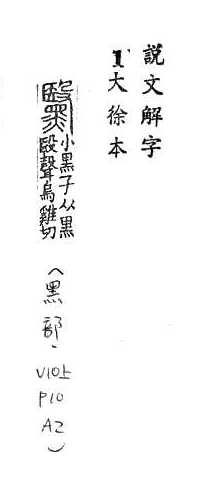 説文解字
1大徐本
黳 小黑子从黑
殹聲烏雞切
(黑部、
V10上
P10
A2)